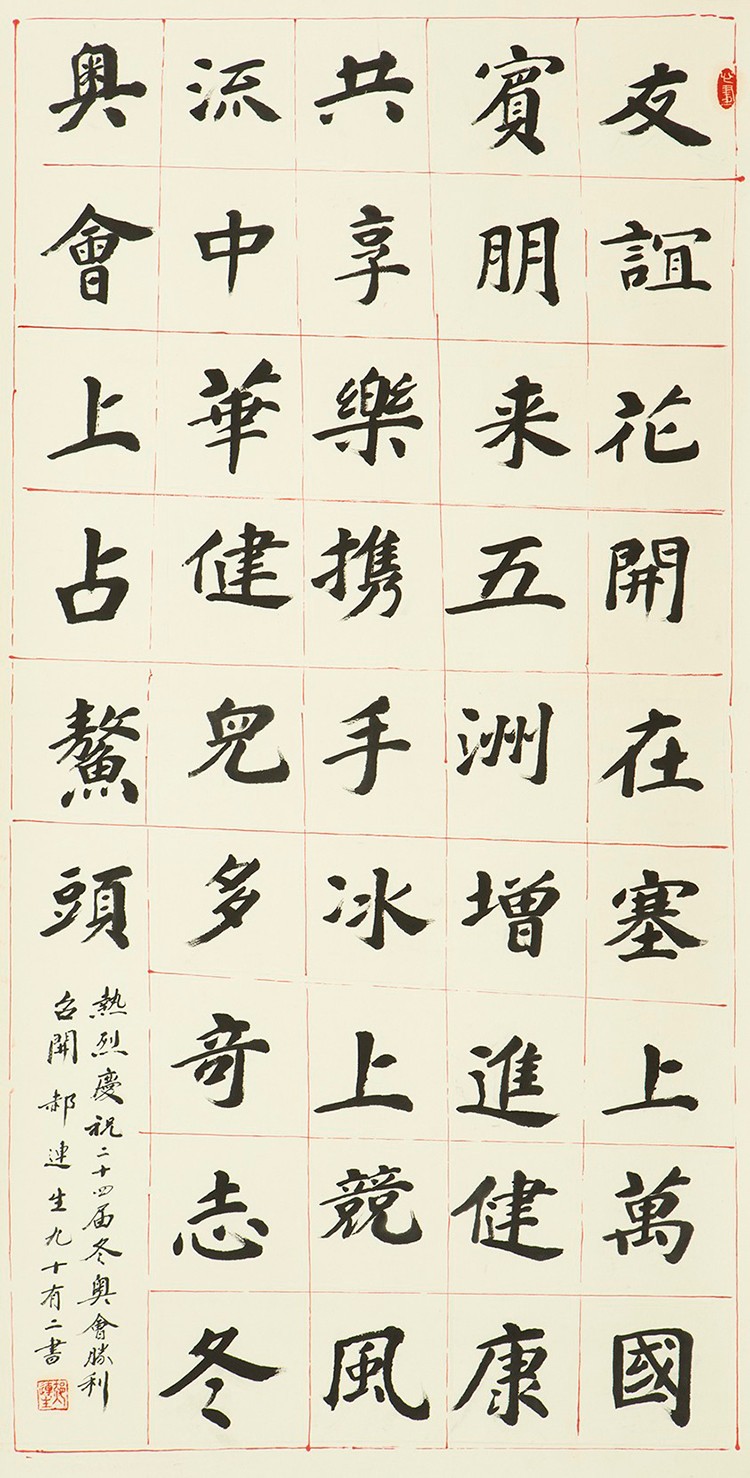 友誼花開在塞上萬國
賓朋来五洲增進健康
共享樂携手冰上競風
流中華健兒多奇志冬
奥會上占鰲頭
熱烈慶祝二十四届冬奥會勝利
召開郝連生九十有二書